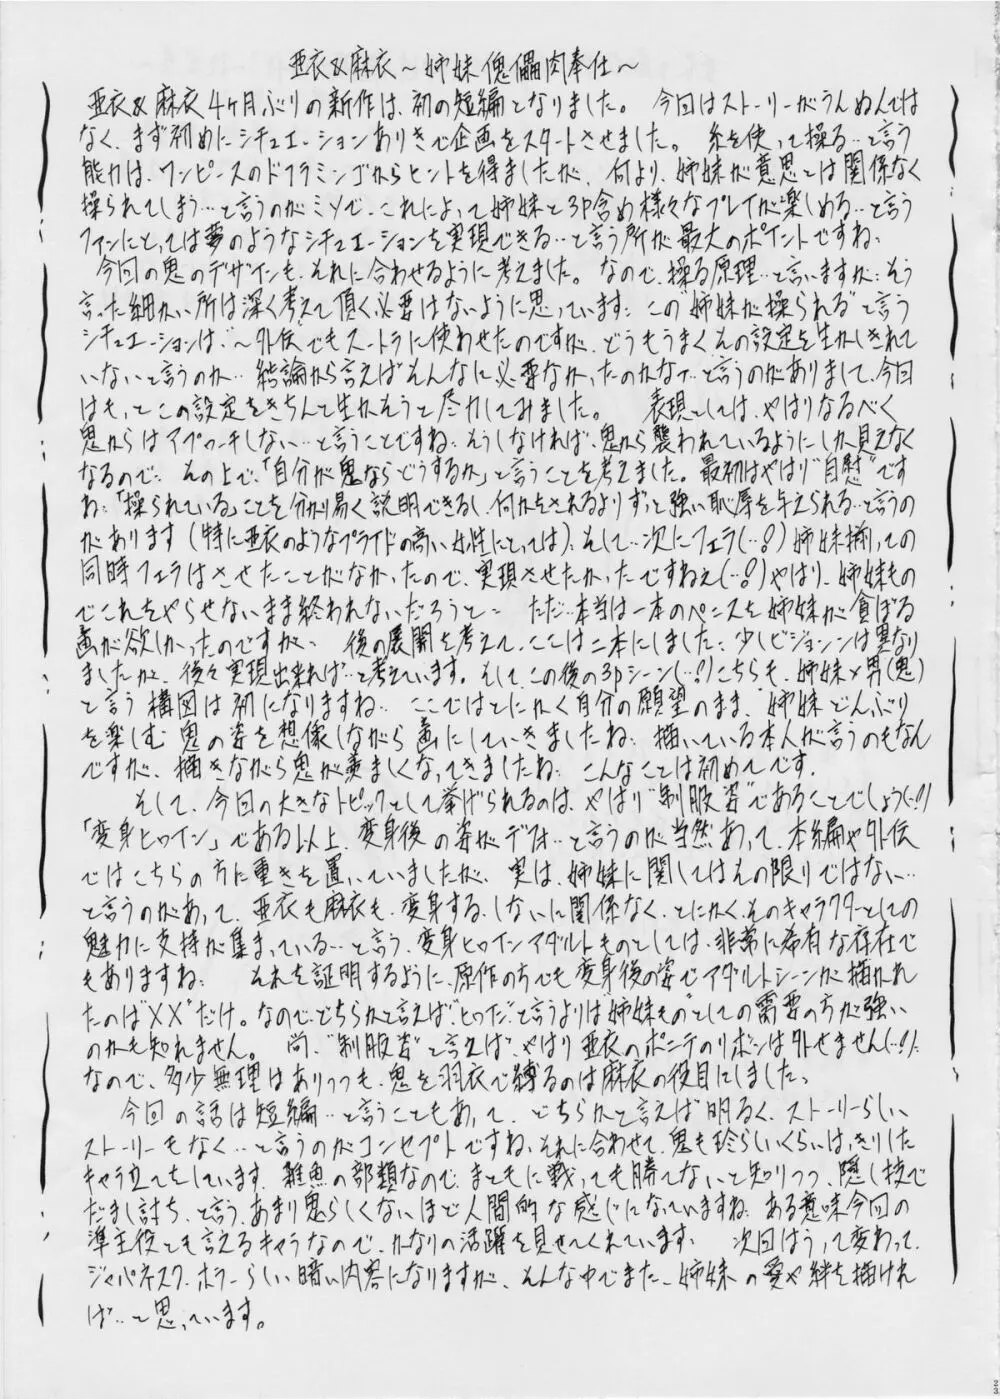 亜衣&麻衣～姉妹傀儡肉奉仕～
亜衣&麻衣4ヶ月ぶりの新作は、初の短編となりました。 今回はストーリーがうんぬんでは
なく、まず初めにシチュエーションありきで企画をスタートさせました。 糸を使って操る…と言う
能力は、ワンピースのドフラミンゴからヒントを得ましたが、何より、姉妹が意思とは関係なく
操られてしまう…と言うのがミソで、これによって姉妹と3P含め様々なプレイが楽しめる…と言う
ファンにとっては夢のようなシチュエーションを実現できる…と言う所が最大のポイントですね、
今回の鬼のデザインも、それに合わせるように考えました。なので、操る原理…と言いますか…そう
言った細かい所は深く考えて頂く必要はないように思っています… この"姉妹が操られる"と言う
シチュエーションは、～外伝でもスートラに使わせたのですが、どうもうまくその設定を生かしきれて
いないと言うのか… 結論から言えばそんなに必要なかったのかなァ…と言うのがありまして、今回
はもっとこの設定をきちんと生かそうと尽力してみました。 表現としては、やはりなるべく
鬼からはアプローチしない…と言うことですね… そうしなければ、鬼から襲われているようにしか見えなく
なるので… その上で、「自分が鬼ならどうするか」と言うことを考えました。最初はやはり"自慰"です
ね…「操られている」ことを分かり易く説明できるし、何かをされるよりずっと強い恥辱を与えられる…と言うの
があります(特に亜衣のようなプライドの高い女性にとっては)、そして…次にフェラ(…!)姉妹揃っての
同時フェラはさせたことがなかったので、実現させたかったですねぇ(…!)やはり、姉妹もの
でこれをやらせないまま終われないだろうと… ただ…本当は一本のペニスを姉妹が貪ぼる
画が欲しかったのですが、 後の展開を考えて、ここは二本にしました… 少しビジョンは異なり
ましたが、後々実現出来れば…と考えています。そして、この後の3Pシーン(…!)こちらも、姉妹×男(鬼)
と言う構図は初になりますね… ここではとにかく自分の願望のまま、姉妹どんぶり
を楽しむ鬼の姿を想像しながら画にしていきましたね… 描いている本人が言うのもなん
ですが、描きながら鬼が羨ましくなってきましたね… こんなことは初めてです。
そして、今回の大きなトピックとして挙げられるのは、やはり"制服姿"であることでしょう(…!)
「変身ヒロイン」である以上、変身後の姿がデフォ…と言うのが当然あって、本編や外伝
ではこちらの方に重きを置いていましたが、実は、姉妹に関してはその限りではない…
と言うのがあって、亜衣も麻衣も、変身する、しないに関係なく、とにかく、そのキャラクターとしての
魅力に支持が集まっている…と言う、変身ヒロインアダルトものとしては、非常に希有な存在で
もありますね… それを証明するように、原作の方でも変身後の姿でアダルトシーンが描かれ
たのは"XX"だけ。なので、どちらかと言えば、"ヒロイン"と言うよりは"姉妹もの"としての需要の方が強い
のかも知れません。 尚、"制服姿"と言えば、やはり亜衣のポニテのリボンは外せません(…!)、
なので、多少無理はありつつも、鬼を羽衣で縛るのは麻衣の役目にしました、
今回の話は短編…と言うこともあって、どちらかと言えば明るく、ストーリーらしい
ストーリーもなく…と言うのがコンセプトですね、それに合わせて、鬼も珍らしいくらいはっきりした
キャラ立てをしています、雑魚の部類なので、まともに戦っても勝てないと知りつつ、隠し技で
だまし討ち、と言う、あまり鬼らしくないほど人間的な感じになっていますね… ある意味今回の
準主役とも言えるキャラなので、かなりの活躍を見せてくれています。 次回はうって変わって、
ジャパネスク・ホラーらしい暗い内容になりますが、そんな中でまた、姉妹の愛や絆を描けれ
ば…と思っています。